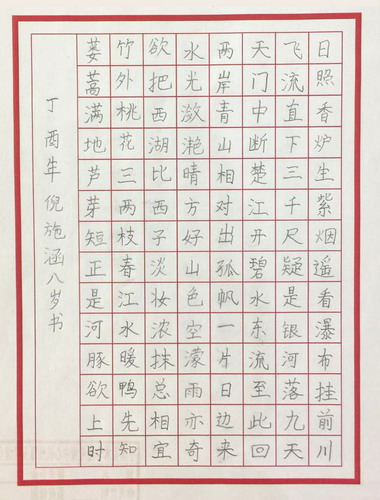 日照香炉生紫烟遥看瀑布挂前川
飞流直下三千尺疑是银河落九天
天门中断楚江开碧水东流至此回
两岸青山相对出孤帆一片日边来
水光潋滟晴方好山色空濛雨亦奇
欲把西湖比西子淡妆浓抹总相宜
竹外桃花三两枝春江水暖鸭先知
蒌蒿满地芦芽短正是河豚欲上时
丁酉年倪施涵八岁书